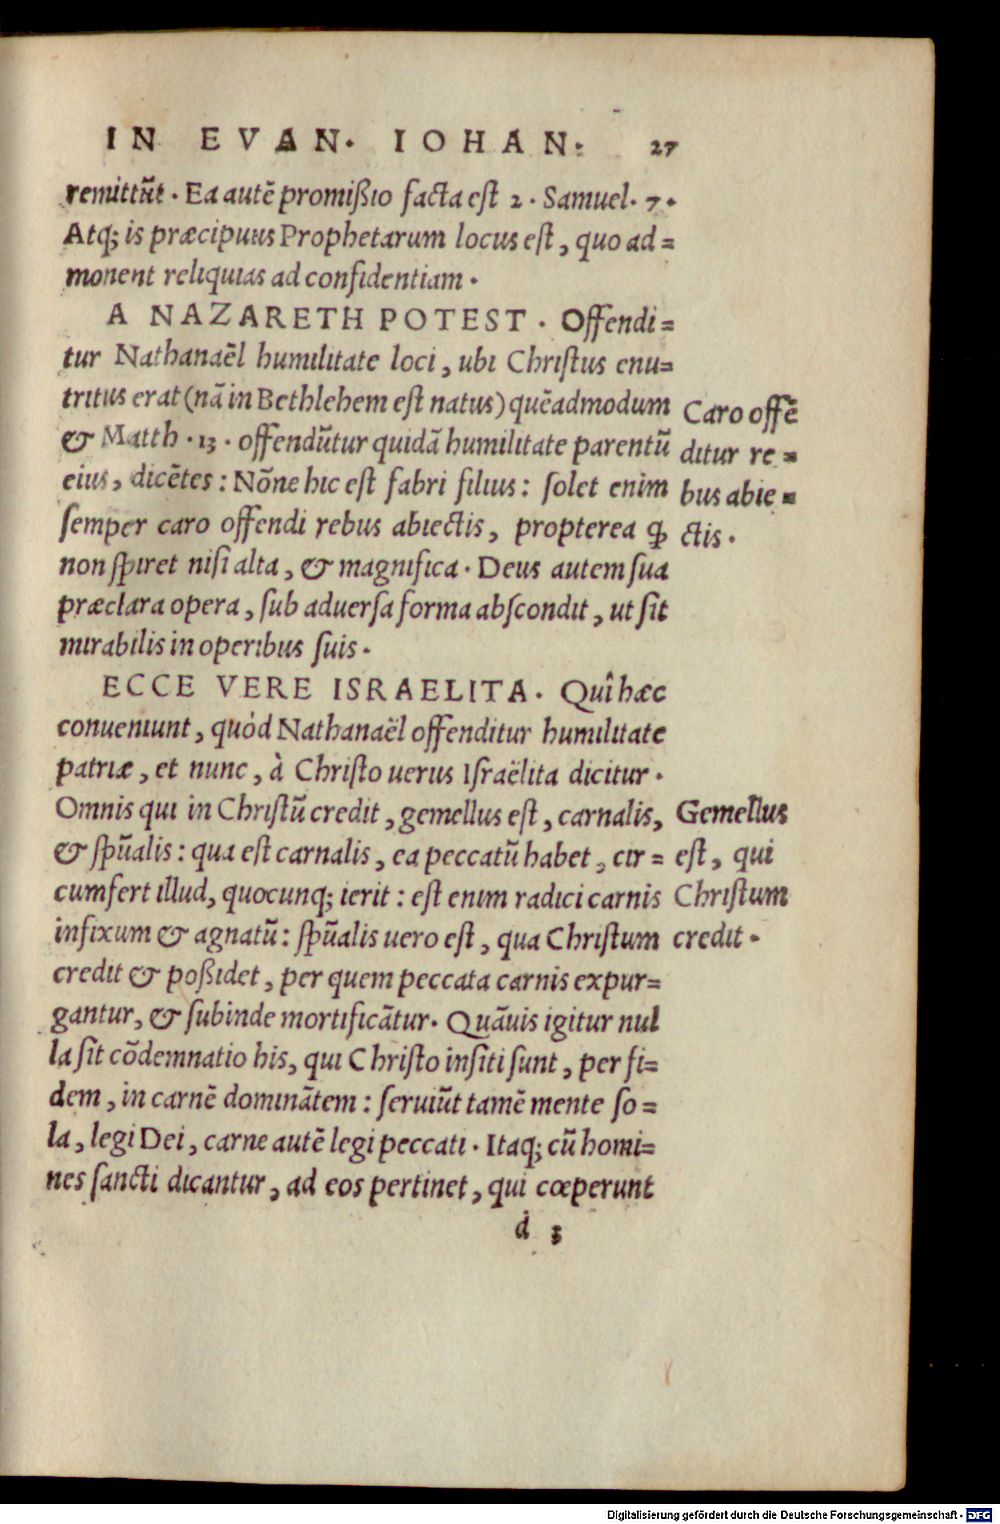 IN EVAN. IOHAN: 27
remittūt. Ea autē promißio facta est 2. Samuel. 7.
Atq; is præcipuus Prophetarum locus est, quo ad=
monent reliquias ad confidentiam.
A NAZARETH POTEST. Offendi=
tur Nathanaēl humilitate loci, ubi Christus enu=
tritus erat (nā in Bethlehem est natus) quēadmodum
& Matth. 13. offendūtur quidā humilitate parentū
eius, dicētes: Nōne hic est fabri filius: solet enim
semper caro offendi rebus abiectis, propterea ꝙ
non spiret nisi alta, & magnifica. Deus autem sua
præclara opera, sub aduersa forma abscondit, ut sit
mirabilis in operibus suis.
Caro offē
ditur re=
bus abie=
ctis.
ECCE VERE ISRAELITA. Quî hæc
conueniunt, quòd Nathanaël offenditur humilitate
patriæ, et nunc, à Christo uerus Israëlita dicitur.
Omnis qui in Christū credit, gemellus est, carnalis,
& spūalis: qua est carnalis, ea peccatū habet, cir=
cumfert illud, quocunq; ierit: est enim radici carnis
infixum & agnatū: spūalis uero est, qua Christum
credit & poßidet, per quem peccata carnis expur=
gantur, & subinde mortificātur. Quāuis igitur nul
la sit cōdemnatio his, qui Christo insiti sunt, per fi=
dem, in carnē dominātem: seruiūt tamē mente so=
la, legi Dei, carne autē legi peccati. Itaq; cū homi=
nes sancti dicantur, ad eos pertinet, qui cœperunt
Gemellus
est, qui
Christum
credit.
d 3
Digitalisierung gefördert durch die Deutsche Forschungsgemeinschaft - DFG